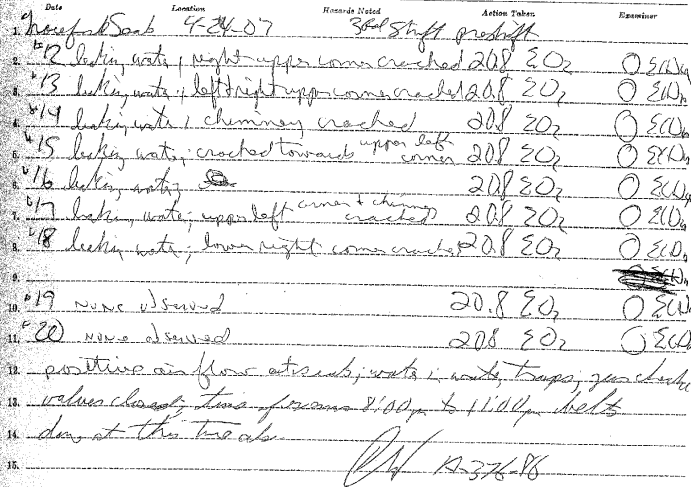 Date Location Hazards Noted Action Taken Examiner
1. Seals 4-24-07 3rd Shift preshift
2. #12 leaking water; right upper corner cracked 20.8 ΣO2 0 ΣCH4
3. #13 leaking water; left/right upper corner cracked 20.8 ΣO2 0 ΣCH4
4. #14 leaking water; chimney cracked 20.8 ΣO2 0 ΣCH4
5. #15 leaking water; cracked towards upper left corner 20.8 ΣO2 0 ΣCH4
6. #16 leaking water; 20.8 ΣO2 0 ΣCH4
7. #17 leaking water; upper left corner + chimney cracked 20.8 ΣO2 0 ΣCH4
8. #18 leaking water; lower right corner cracked 20.8 ΣO2 0 ΣCH4
9.
10. #19 none observed 20.8 ΣO2 0 ΣCH4
11. #20 none observed 20.8 ΣO2 0 ΣCH4
12. positive air flow at seals; water in water traps;
13. valves closed; time from 8:00pm to 11:00pm belts
14. down at this time
15. A-376-86